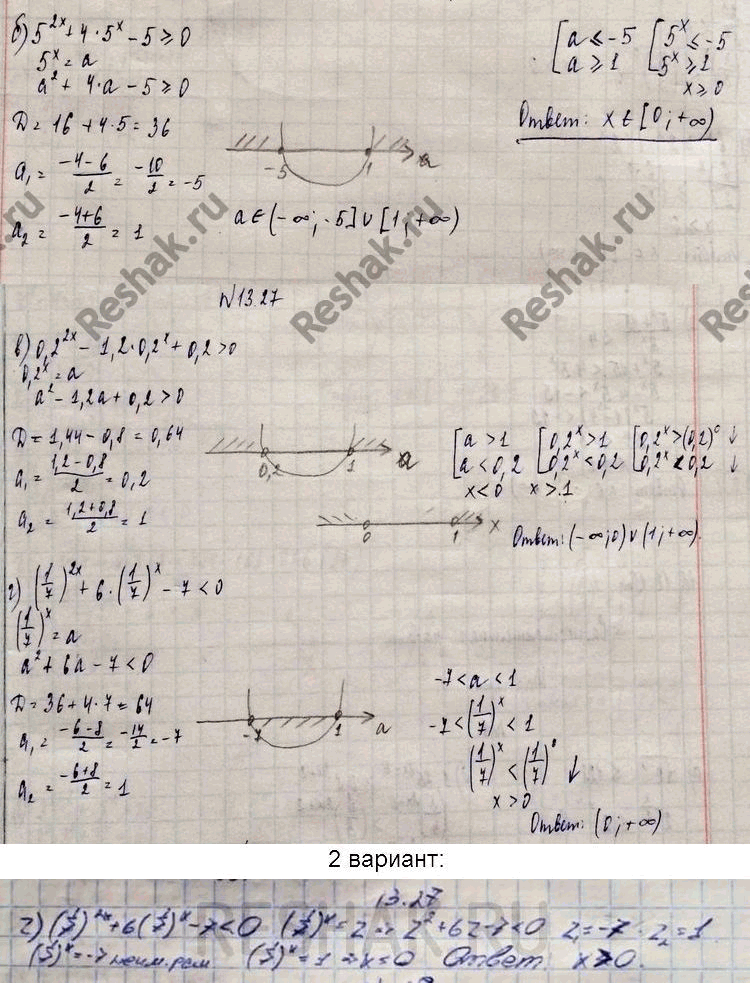 б) 5^{2x} + 4·5^x − 5 ≥ 0
5^x = a
a² + 4·a − 5 ≥ 0
D = 16 + 4·5 = 36
a₁ = (−4−6)/2 = −10/2 = −5
a₂ = (−4+6)/2 = 1
−5 1 a
a ∈ (−∞; −5] ∪ [1; +∞)
[a ≤ −5 [5^x ≤ −5
a ≥ 1 5^x ≥ 1
x ≥ 0
Ответ: x ∈ [0; +∞)
N 13.27
в) 0,2^{2x} − 1,2·0,2^x + 0,2 > 0
0,2^x = a
a² − 1,2a + 0,2 > 0
D = 1,44 − 0,8 = 0,64
a₁ = (1,2−0,8)/2 = 0,2
a₂ = (1,2+0,8)/2 = 1
0,2 1 a
[a > 1 [0,2^x > 1 [0,2^x > (0,2)^0 ↓
a < 0,2 0,2^x < 0,2 0,2^x < 0,2 ↓
x < 0 x > 1
0 1 x
Ответ: (−∞; 0) ∪ (1; +∞).
г) (1/7)^{2x} + 6·(1/7)^x − 7 < 0
(1/7)^x = a
a² + 6a − 7 < 0
D = 36 + 4·7 = 64
a₁ = (−6−8)/2 = −14/2 = −7
a₂ = (−6+8)/2 = 1
−7 1 a
−7 < a < 1
−7 < (1/7)^x < 1
(1/7)^x < (1/7)^0 ↓
x > 0
Ответ: (0; +∞)
Reshak.ru
Reshak.ru
Reshak.ru
2 вариант:
13.27
г) (1/7)^{2x} + 6(1/7)^x − 7 < 0 (1/7)^x = z => z² + 6z − 7 < 0 z₁ = −7 z₂ = 1
(1/7)^x = −7 не им. реш (1/7)^x = 1 => x = 0 Ответ x > 0.
RESHAK.RU